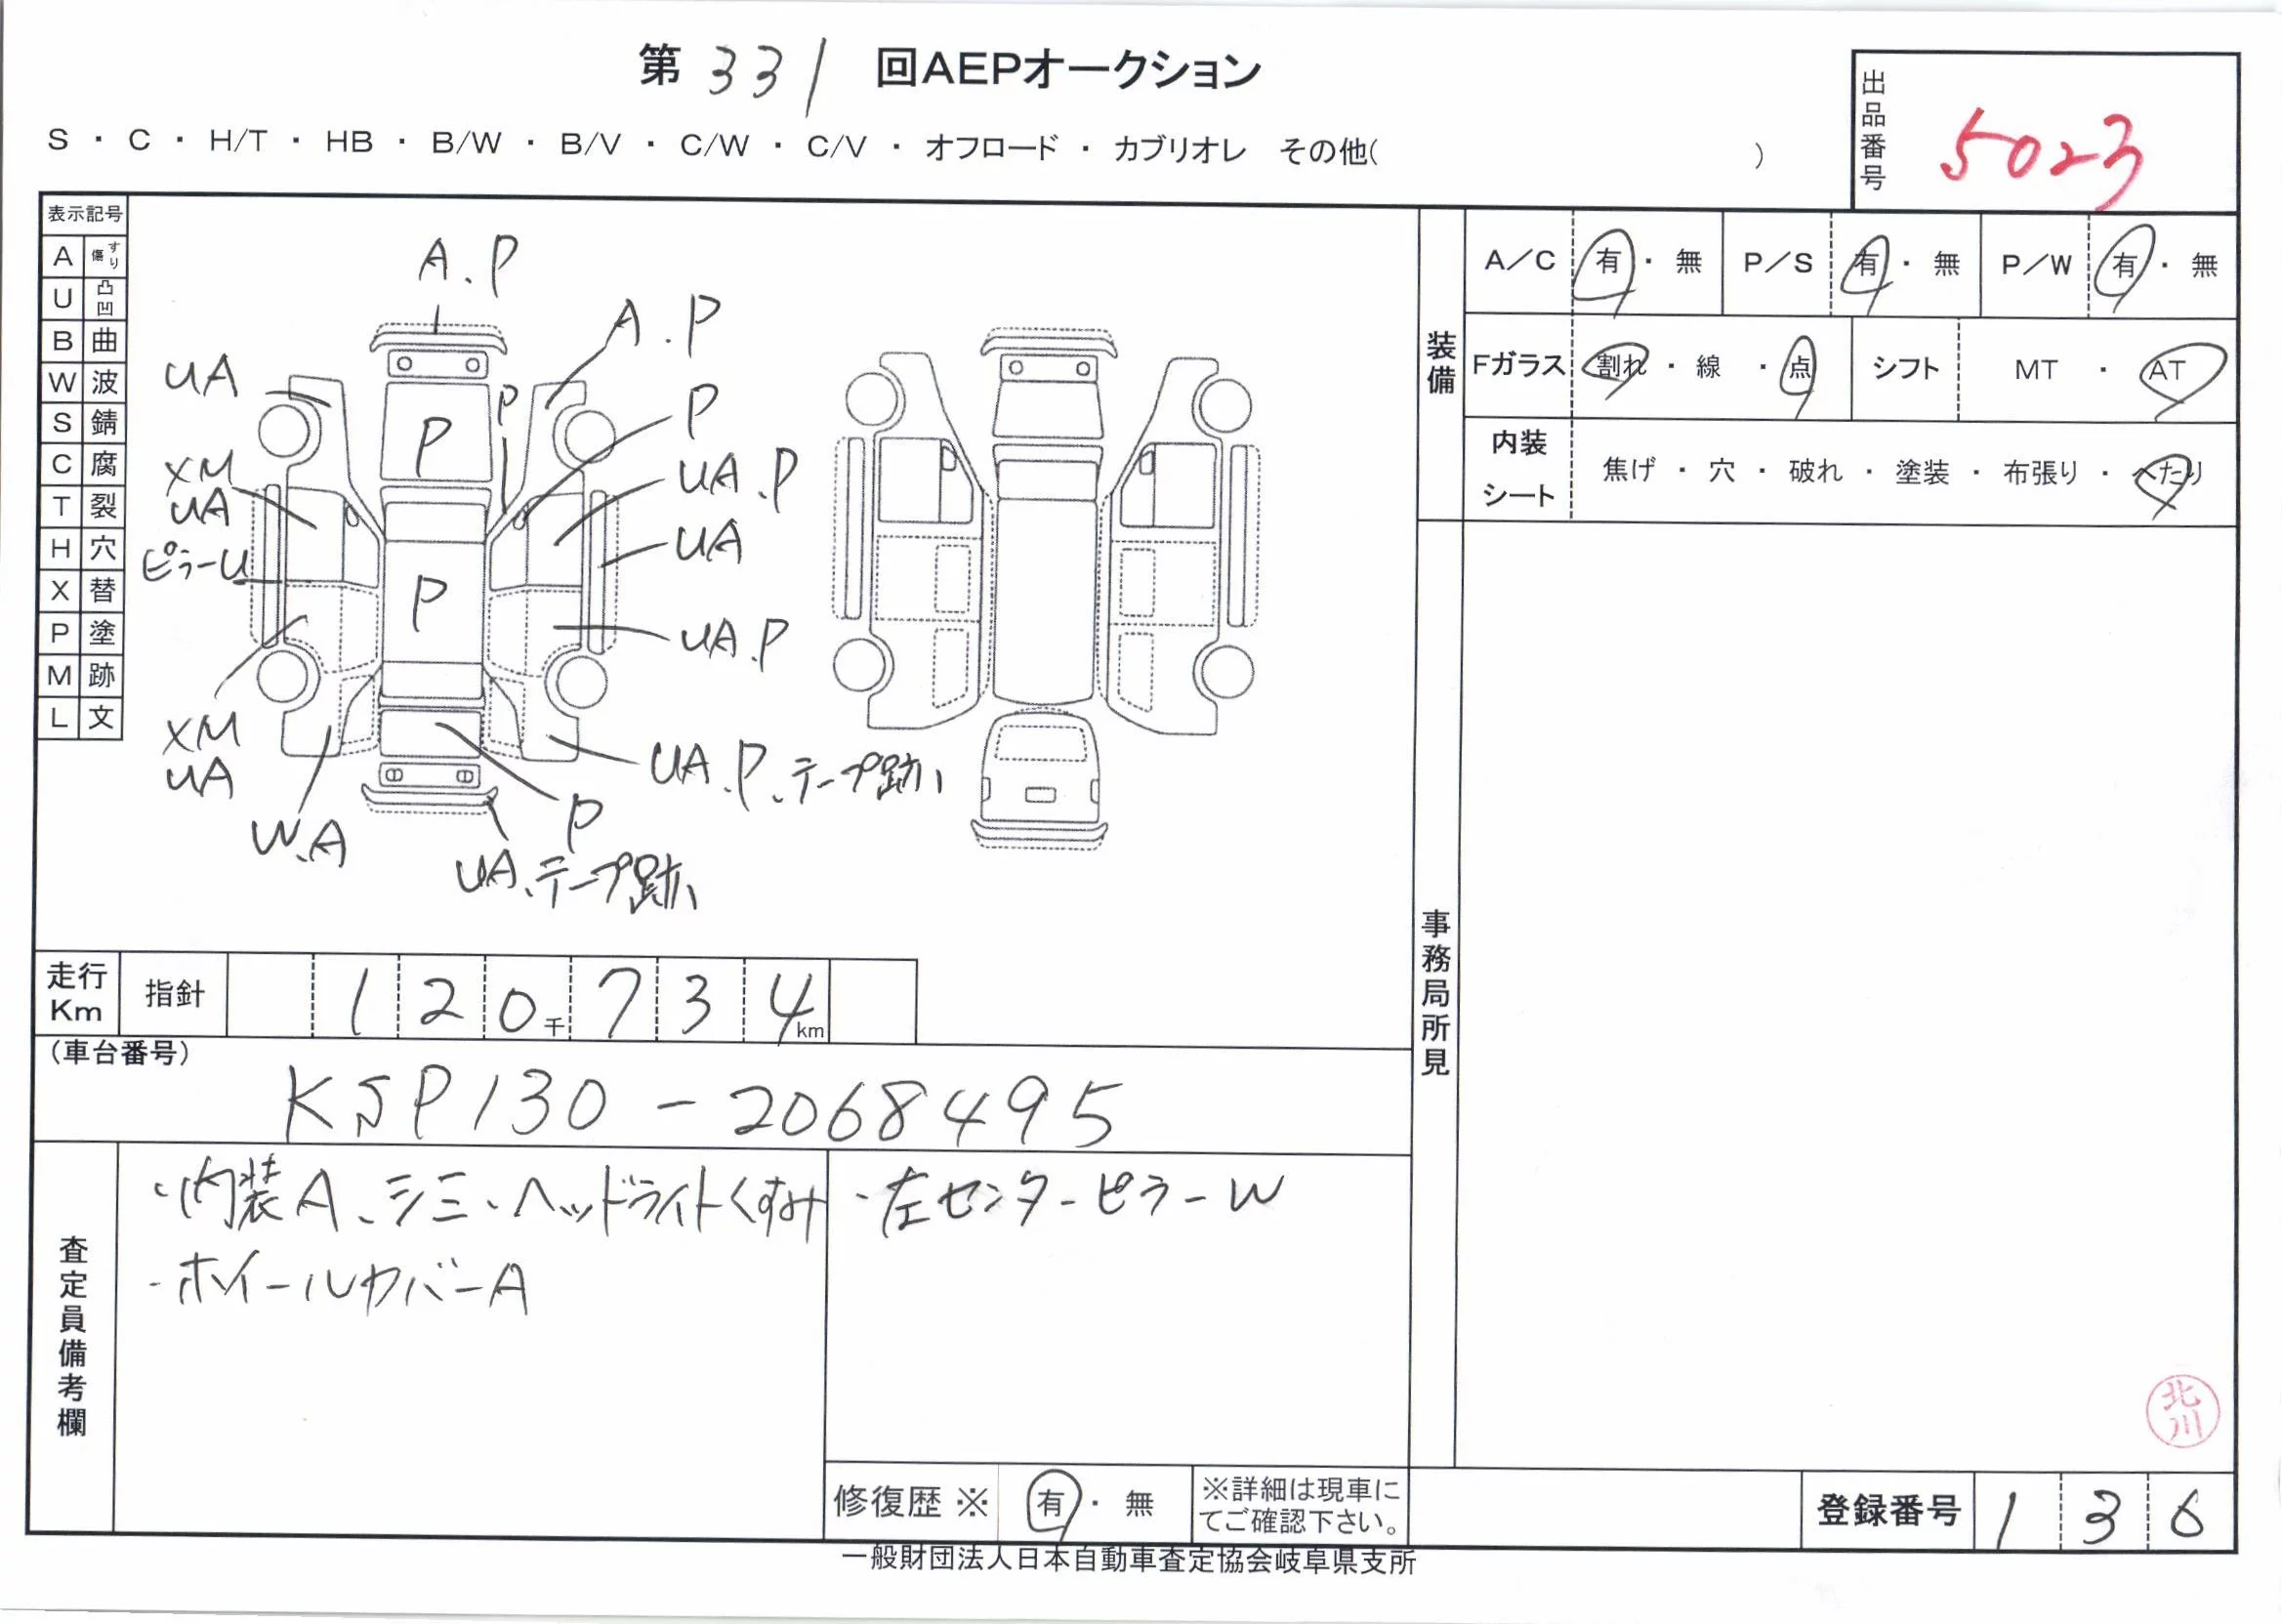 第 331 回AEPオークション
S ・ C ・ H/T ・ HB ・ B/W ・ B/V ・ C/W ・ C/V ・ オフロード ・ カブリオレ その他( )
出品番号 5023
表示記号
A すり傷
U 凸凹
B 曲
W 波
S 錆
C 腐
T 裂
H 穴
X 替
P 塗
M 跡
L 文
A.P
A.P
UA
P
P
P
XM
UA
UA.P
UA
ピラーU
P
UA.P
XM
UA
UA.P、テープ跡
W.A
P
UA、テープ跡
装備
A/C 有・無 P/S 有・無 P/W 有・無
Fガラス 割れ ・ 線 ・ 点 シフト MT ・ AT
内装シート 焦げ ・ 穴 ・ 破れ ・ 塗装 ・ 布張り ・ へたり
事務局所見
走行Km 指針 120千734km
(車台番号)
KSP130-2068495
査定員備考欄
・内装A、シミ・ヘッドライトくすみ
・ホイールカバーA
・左センターピラーW
修復歴 ※ 有・無
※詳細は現車に
てご確認下さい。
北川
登録番号 136
一般財団法人日本自動車査定協会岐阜県支所